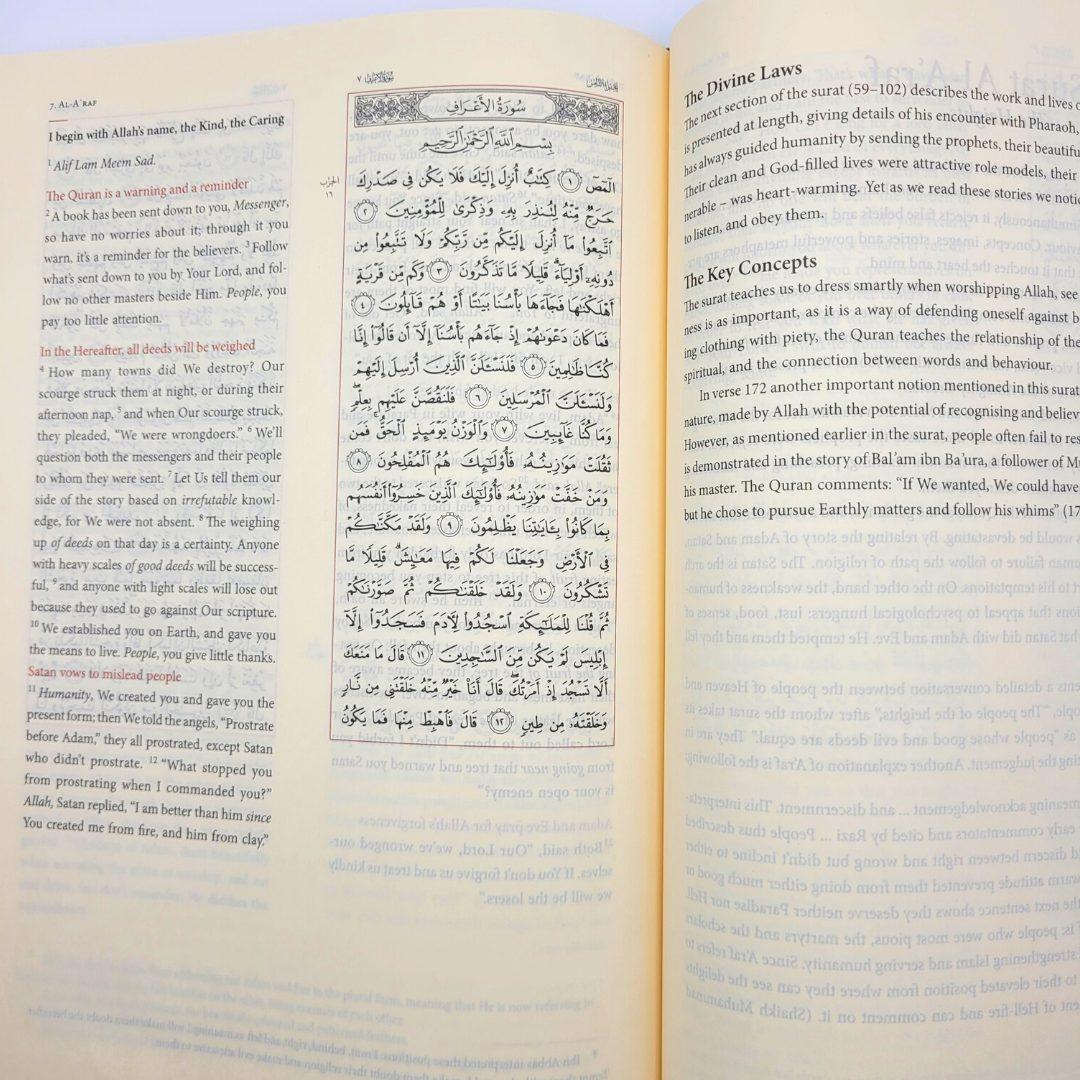 7. AL-AʿRAF
I begin with Allah's name, the Kind, the Caring
1 Alif Lam Meem Sad.
The Quran is a warning and a reminder
2 A book has been sent down to you, Messenger,
so have no worries about it; through it you
warn, it's a reminder for the believers. 3 Follow
what's sent down to you by Your Lord, and fol-
low no other masters beside Him. People, you
pay too little attention.
In the Hereafter, all deeds will be weighed
4 How many towns did We destroy? Our
scourge struck them at night, or during their
afternoon nap, 5 and when Our scourge struck,
they pleaded, “We were wrongdoers.” 6 We'll
question both the messengers and their people
to whom they were sent. 7 Let Us tell them our
side of the story based on irrefutable knowl-
edge, for We were not absent. 8 The weighing
up of deeds on that day is a certainty. Anyone
with heavy scales of good deeds will be success-
ful, 9 and anyone with light scales will lose out
because they used to go against Our scripture.
10 We established you on Earth, and gave you
the means to live. People, you give little thanks.
Satan vows to mislead people
11 Humanity, We created you and gave you the
present form; then We told the angels, “Prostrate
before Adam,” they all prostrated, except Satan
who didn't prostrate. 12 “What stopped you
from prostrating when I commanded you?”
Allah, Satan replied, “I am better than him since
You created me from fire, and him from clay.”
سورة الأعراف ٧
الجزء الثامن
سُورَةُ الأَعْرَافِ
بِسْمِ اللَّهِ الرَّحْمَٰنِ الرَّحِيمِ
الحزب
١٦
الٓمٓصٓ ١ كِتَٰبٌ أُنزِلَ إِلَيْكَ فَلَا يَكُن فِى صَدْرِكَ
حَرَجٌ مِّنْهُ لِتُنذِرَ بِهِۦ وَذِكْرَىٰ لِلْمُؤْمِنِينَ ٢
ٱتَّبِعُوا۟ مَآ أُنزِلَ إِلَيْكُم مِّن رَّبِّكُمْ وَلَا تَتَّبِعُوا۟ مِن
دُونِهِۦٓ أَوْلِيَآءَ ۗ قَلِيلًا مَّا تَذَكَّرُونَ ٣ وَكَم مِّن قَرْيَةٍ
أَهْلَكْنَٰهَا فَجَآءَهَا بَأْسُنَا بَيَٰتًا أَوْ هُمْ قَآئِلُونَ ٤
فَمَا كَانَ دَعْوَىٰهُمْ إِذْ جَآءَهُم بَأْسُنَآ إِلَّآ أَن قَالُوٓا۟ إِنَّا
كُنَّا ظَٰلِمِينَ ٥ فَلَنَسْـَٔلَنَّ ٱلَّذِينَ أُرْسِلَ إِلَيْهِمْ
وَلَنَسْـَٔلَنَّ ٱلْمُرْسَلِينَ ٦ فَلَنَقُصَّنَّ عَلَيْهِم بِعِلْمٍ ۖ
وَمَا كُنَّا غَآئِبِينَ ٧ وَٱلْوَزْنُ يَوْمَئِذٍ ٱلْحَقُّ ۚ فَمَن
ثَقُلَتْ مَوَٰزِينُهُۥ فَأُو۟لَٰٓئِكَ هُمُ ٱلْمُفْلِحُونَ ٨
وَمَنْ خَفَّتْ مَوَٰزِينُهُۥ فَأُو۟لَٰٓئِكَ ٱلَّذِينَ خَسِرُوٓا۟ أَنفُسَهُم
بِمَا كَانُوا۟ بِـَٔايَٰتِنَا يَظْلِمُونَ ٩ وَلَقَدْ مَكَّنَّٰكُمْ
فِى ٱلْأَرْضِ وَجَعَلْنَا لَكُمْ فِيهَا مَعَٰيِشَ ۗ قَلِيلًا مَّا
تَشْكُرُونَ ١٠ وَلَقَدْ خَلَقْنَٰكُمْ ثُمَّ صَوَّرْنَٰكُمْ
ثُمَّ قُلْنَا لِلْمَلَٰٓئِكَةِ ٱسْجُدُوا۟ لِـَٔادَمَ فَسَجَدُوٓا۟ إِلَّآ
إِبْلِيسَ لَمْ يَكُن مِّنَ ٱلسَّٰجِدِينَ ١١ قَالَ مَا مَنَعَكَ
أَلَّا تَسْجُدَ إِذْ أَمَرْتُكَ ۖ قَالَ أَنَا۠ خَيْرٌ مِّنْهُ خَلَقْتَنِى مِن نَّارٍ
وَخَلَقْتَهُۥ مِن طِينٍ ١٢ قَالَ فَٱهْبِطْ مِنْهَا فَمَا يَكُونُ
The Divine Laws
The next section of the surat (59–102) describes the work and lives
is presented at length, giving details of his encounter with Pharaoh,
has always guided humanity by sending the prophets, their beautiful
Their clean and God-filled lives were attractive role models, their
nerable – was heart-warming. Yet as we read these stories we
to listen, and obey them.
The Key Concepts
The surat teaches us to dress smartly when worshipping Allah, see
ness is as important, as it is a way of defending oneself against
ing clothing with piety, the Quran teaches the relationship of the
spiritual, and the connection between words and behaviour.
In verse 172 another important notion mentioned in this surat
nature, made by Allah with the potential of recognising and
However, as mentioned earlier in the surat, people often fail to
is demonstrated in the story of Balʿam ibn Baʿura, a follower of
his master. The Quran comments: “If We wanted, We could have
but he chose to pursue Earthly matters and follow his whims”